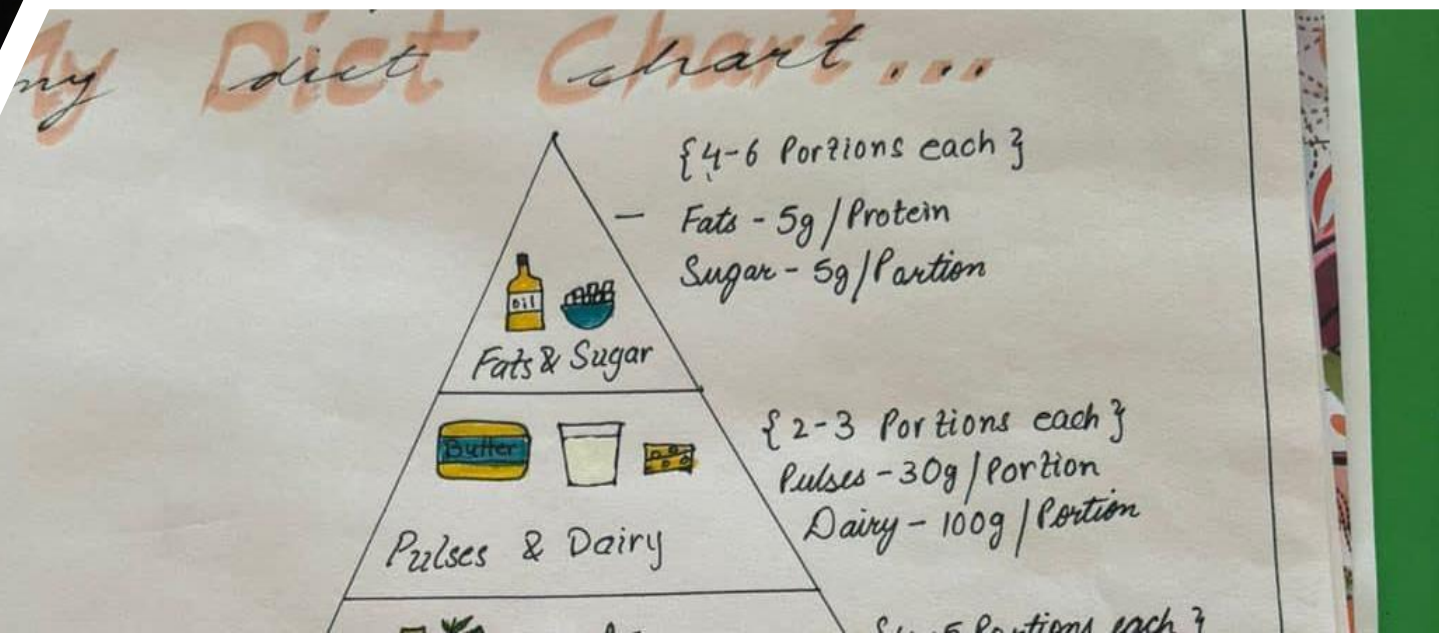 My Diet Chart...
my diet chart...
{4-6 Portions each}
Fats - 5g/Protein
Sugar - 5g/Partion
Oil
Fats & Sugar
{2-3 Portions each}
Butter
Pulses - 30g/Portion
Dairy - 100g/Portion
Pulses & Dairy
5 Portions each}